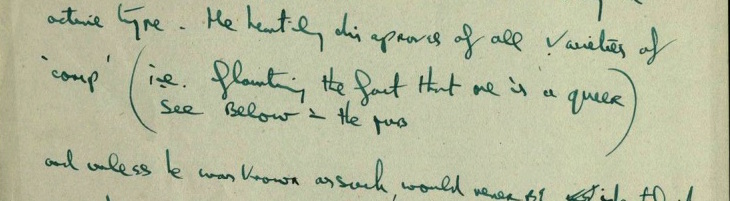 active type. He heartily disaproves of all varieties of
'camp' (i.e. flaunting the fact that one is a queer
see Below = the pub
and unless he was known as such, would never be